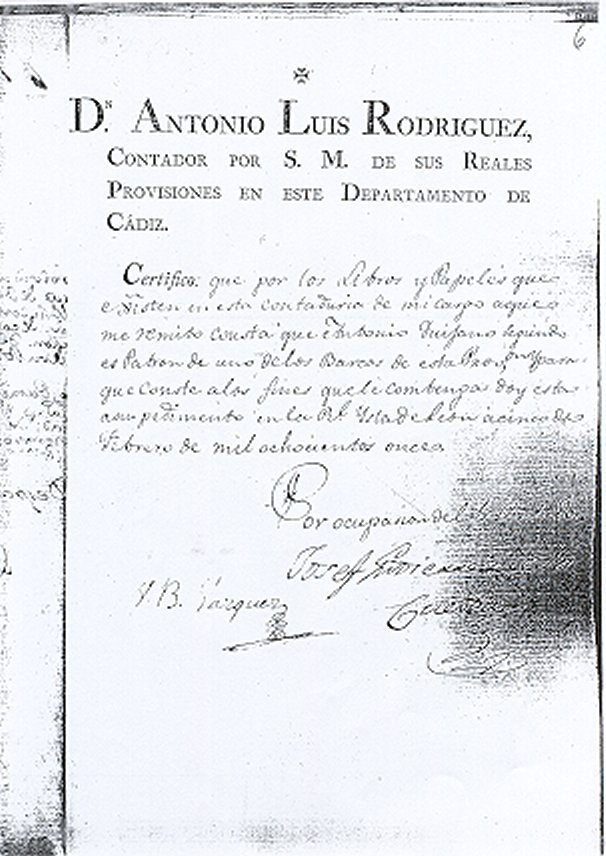 6
Dn. ANTONIO LUIS RODRIGUEZ,
CONTADOR POR S. M. DE SUS REALES
PROVISIONES EN ESTE DEPARTAMENTO DE
CÁDIZ.
Certifico: que por los Libros y Papeles que
existen en esta contaduria de mi cargo aque
me remito consta que Antonio
es Patron de uno de los Barcos de esta Prov.on y para
que conste a los fines que le combenga doy esta
a su pedimento en la Rl. Isla de Leon a cinco de
Febrero de mil ochocientos once
Por ocupacion del
Josef
V. B. Vazquez